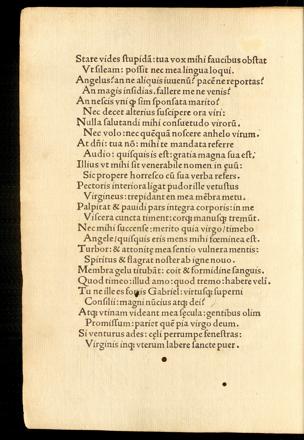 Stare vides stupidā: tua vox mihi faucibus obstat
Vt sileam: possit nec mea lingua loqui.
Angelus? an ne aliquis iuuenū? pacē ne reportas?
An magis insidias. fallere me ne venis?
An nescis vni q̄ sim sponsata marito?
Nec decet alterius suscipere ora viri:
Nulla salutandi mihi consuetudo virorū.
Nec volo: nec quēquā noscere anhelo virum.
At dn̄i: tua nō: mihi te mandata referre
Audio: quisquis is est: gratia magna sua est.
Illius vt mihi sit venerabile nomen in pūū:
Sic propere horresco eū sua verba refers.
Pectoris interiora ligat pudor ille vetustus
Virgineus: trepidant en mea mēbra metu.
Palpitat & pauidi pars integra corporis: in me
Viscera cuncta timent: corq; manusq; tremūt.
Nec mihi successe: merito quia virgo/ timebo
Angele/ quisquis eris mens mihi fœminea est.
Turbor: & attonitę mea sentio vulnera mentis:
Spiritus & flagrat noster ab igne nouo.
Membra gelu titubāt: coit & formidine sanguis.
Quod timeo: illud amo: quod tremo: habere velī.
Tu ne ille es Gabriel: virtusq; superni
Consilii: magni nūcius atq; dei?
Atq; vtinam videant mea sęcula: gentibus olim
Promissum: pariet quē pia virgo deum.
Si venturus ades: cęli perrumpe fenestras:
Virginis inq; vterum labere sancte puer.